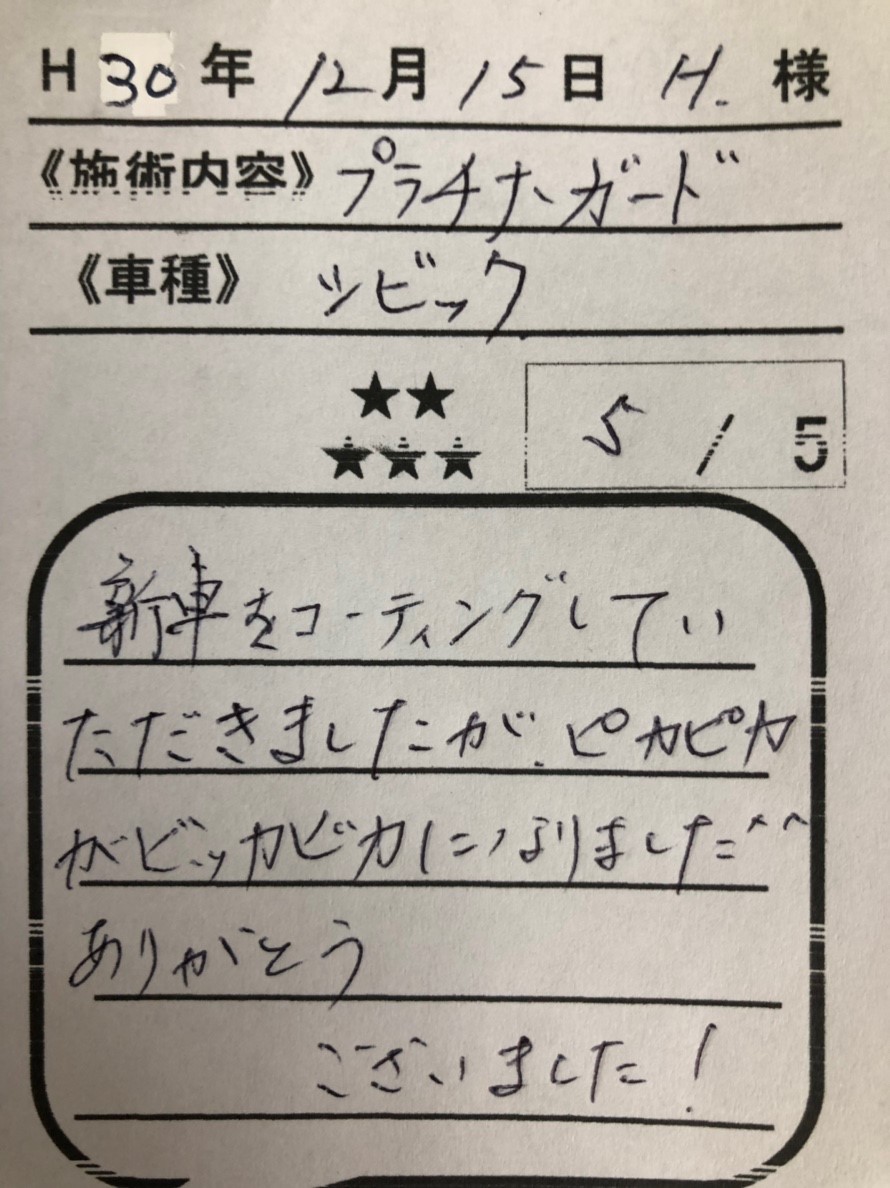 H 30 年 12 月 15 日 H. 様
《施術内容》 プラチナガード
《車種》 シビック
★★
★★★ 5 / 5
新車をコーティングしてい
ただきましたが、ピカピカ
がビッカビカになりました^^
ありがとう
ございました!